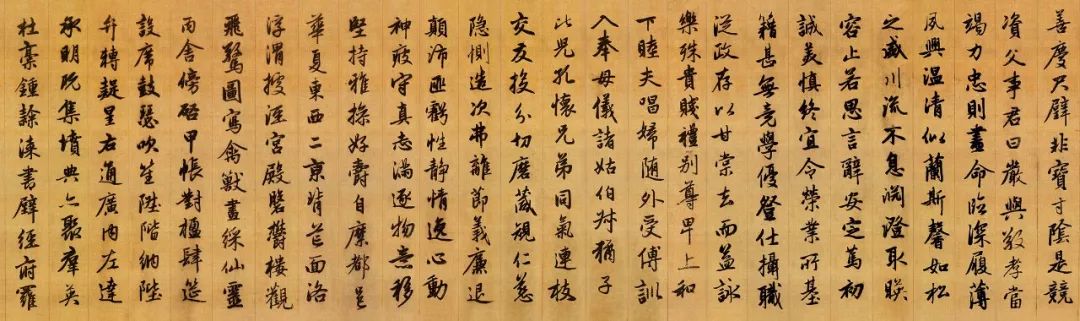 善慶尺璧非寶寸陰是競
資父事君曰嚴與敬孝當
竭力忠則盡命臨深履薄
夙興溫清似蘭斯馨如松
之盛川流不息淵澄取暎
容止若思言辭安定篤初
誠美慎終宜令榮業所基
籍甚無竟學優登仕攝職
從政存以甘棠去而益詠
樂殊貴賤禮別尊卑上和
下睦夫唱婦隨外受傅訓
入奉母儀諸姑伯叔猶子
比兒孔懷兄弟同氣連枝
交友投分切磨箴規仁慈
隱惻造次弗離節義廉退
顛沛匪虧性靜情逸心動
神疲守真志滿逐物意移
堅持雅操好爵自縻都邑
華夏東西二京背芒面洛
浮渭據涇宮殿磐欝樓觀
飛驚圖寫禽獸畫綵仙靈
丙舍傍啓甲帳對楹肆筵
設席鼓瑟吹笙陞階納陛
弁轉疑星右通廣內左達
承明既集墳典亦聚羣英
杜稾鍾隸漆書壁經府羅